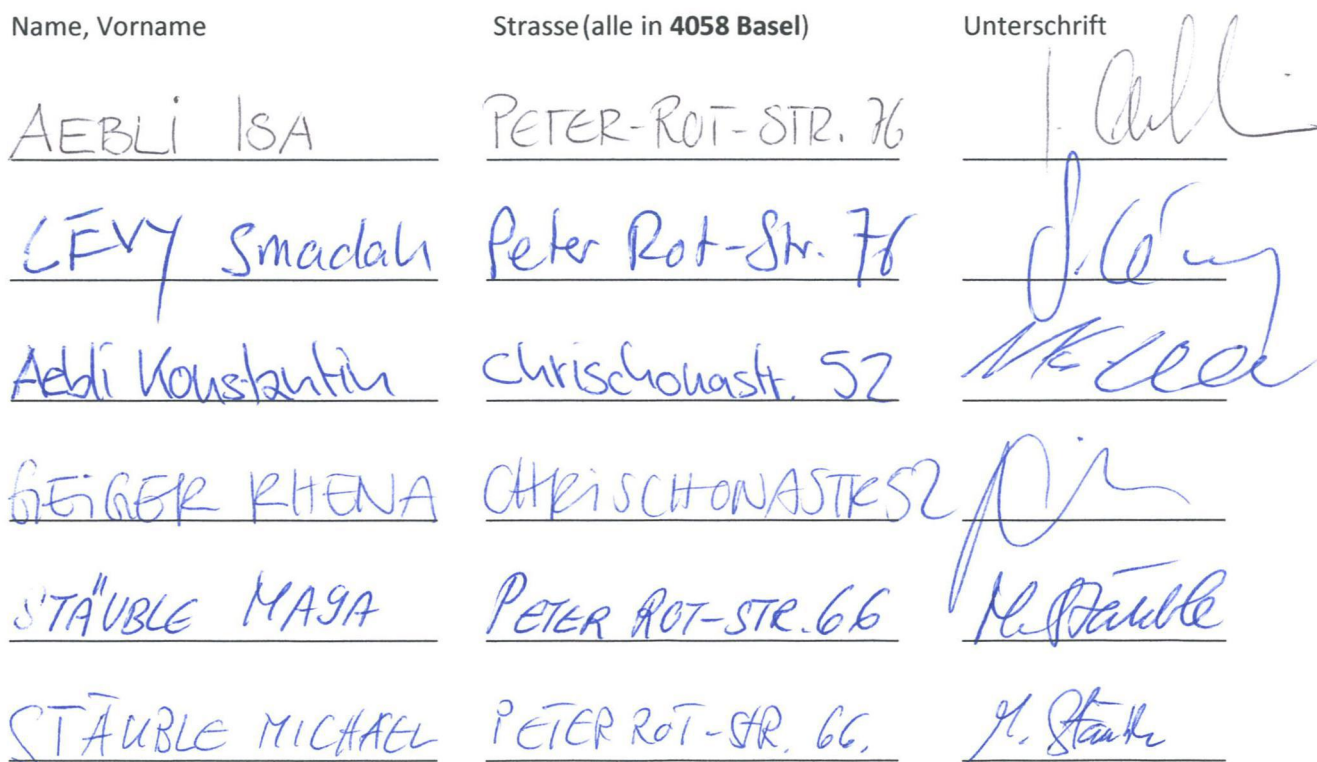 Name, Vorname Strasse (alle in 4058 Basel) Unterschrift
AEBLi ISA PETER-ROT-STR. 76 I. Aebli
LÉVY Smadah Peter Rot-Str. 76 S. Lévy
Aebli Konstantin Chrischonastr. 52
GEiGER RHENA CHRiSCHONASTR 52
STÄUBLE MAJA PETER ROT-STR. 66 M. Stäuble
STÄUBLE MICHAEL PETER ROT-STR. 66. M. Stäuble